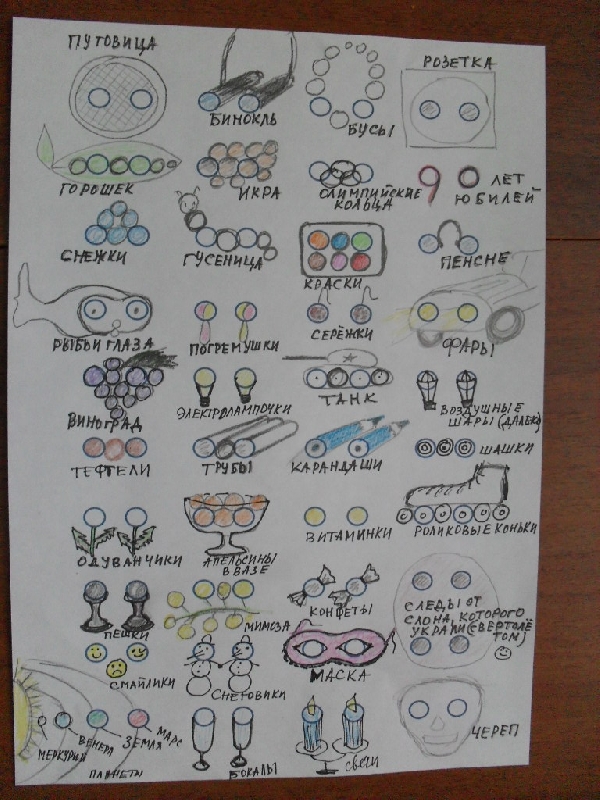 ПУГОВИЦА
БИНОКЛЬ
БУСЫ
РОЗЕТКА
ГОРОШЕК
ИКРА
ОЛИМПИЙСКИЕ
КОЛЬЦА
9 0 ЛЕТ
ЮБИЛЕЙ
СНЕЖКИ
ГУСЕНИЦА
КРАСКИ
ПЕНСНЕ
РЫБЬИ ГЛАЗА
ПОГРЕМУШКИ
СЕРЁЖКИ
ФАРЫ
ВИНОГРАД
ЭЛЕКТРОЛАМПОЧКИ
ТАНК
ВОЗДУШНЫЕ
ШАРЫ (ДАЛЕКО)
ТЕФТЕЛИ
ТРУБЫ
КАРАНДАШИ
ШАШКИ
ОДУВАНЧИКИ
АПЕЛЬСИНЫ
В ВАЗЕ
ВИТАМИНКИ
РОЛИКОВЫЕ КОНЬКИ
ПЕШКИ
МИМОЗА
КОНФЕТЫ
СЛЕДЫ ОТ
СЛОНА, КОТОРОГО
УКРАЛИ (С ВЕРТОЛЁ
ТОМ)
СМАЙЛИКИ
СНЕГОВИКИ
МАСКА
МЕРКУРИЙ
ВЕНЕРА
ЗЕМЛЯ
МАРС
ПЛАНЕТЫ
БОКАЛЫ
СВЕЧИ
ЧЕРЕП